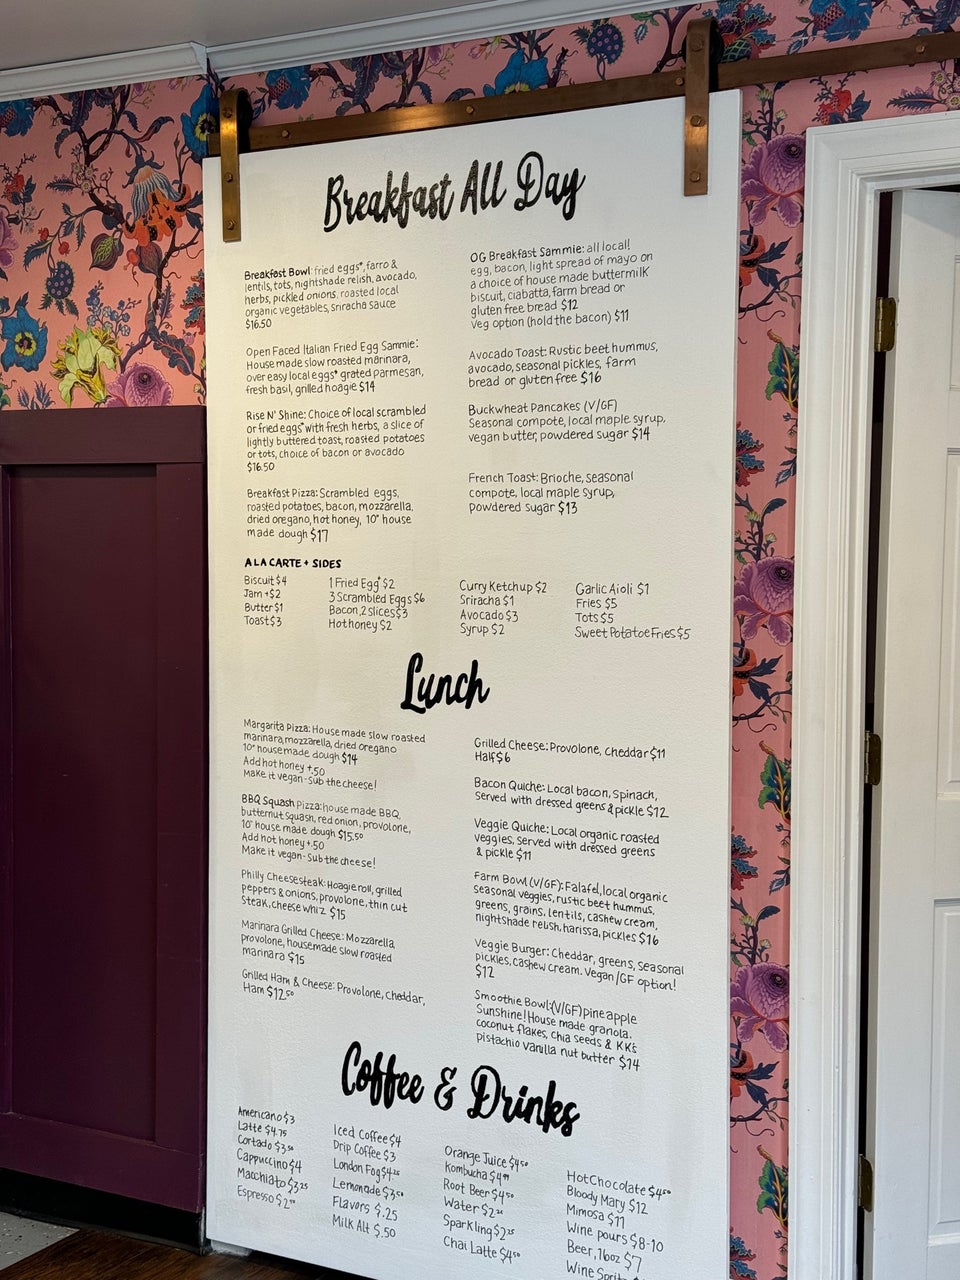 Breakfast All Day
Breakfast Bowl: fried eggs*, farro &
lentils, tots, nightshade relish, avocado,
herbs, pickled onions, roasted local
organic vegetables, sriracha sauce
$16.50
Open Faced Italian Fried Egg Sammie:
House made slow roasted marinara,
over easy local eggs* grated parmesan,
fresh basil, grilled hoagie $14
Rise N' Shine: Choice of local scrambled
or fried eggs* with fresh herbs, a slice of
lightly buttered toast, roasted potatoes
or tots, choice of bacon or avocado
$16.50
Breakfast Pizza: Scrambled eggs,
roasted potatoes, bacon, mozzarella,
dried oregano, hot honey, 10" house
made dough $17
OG Breakfast Sammie: all local!
egg, bacon, light spread of mayo on
a choice of house made buttermilk
biscuit, ciabatta, farm bread or
gluten free bread $12
Veg option (hold the bacon) $11
Avocado Toast: Rustic beet hummus,
avocado, seasonal pickles, farm
bread or gluten free $16
Buckwheat Pancakes (V/GF)
Seasonal compote, local maple syrup,
vegan butter, powdered sugar $14
French Toast: Brioche, seasonal
compote, local maple syrup,
powdered sugar $13
A LA CARTE + SIDES
Biscuit $4
Jam +$2
Butter $1
Toast $3
1 Fried Egg* $2
3 Scrambled Eggs $6
Bacon, 2 slices $3
Hot honey $2
Curry Ketchup $2
Sriracha $1
Avocado $3
Syrup $2
Garlic Aioli $1
Fries $5
Tots $5
Sweet Potato Fries $5
Lunch
Margarita Pizza: House made slow roasted
marinara, mozzarella, dried oregano
10" house made dough $14
Add hot honey +.50
Make it vegan - Sub the cheese!
BBQ Squash Pizza: house made BBQ,
butternut squash, red onion, provolone,
10" house made dough $15.50
Add hot honey +.50
Make it vegan - Sub the cheese!
Philly Cheesesteak: Hoagie roll, grilled
peppers & onions, provolone, thin cut
steak, cheese whiz $15
Marinara Grilled Cheese: Mozzarella
provolone, housemade slow roasted
marinara $15
Grilled Ham & Cheese: Provolone, cheddar,
Ham $12.50
Grilled Cheese: Provolone, cheddar $11
Half $6
Bacon Quiche: Local bacon, spinach,
Served with dressed greens & pickle $12
Veggie Quiche: Local organic roasted
veggies, served with dressed greens
& pickle $11
Farm Bowl (V/GF): Falafel, local organic
seasonal veggies, rustic beet hummus,
greens, grains, lentils, cashew cream,
nightshade relish, harissa, pickles $16
Veggie Burger: Cheddar, greens, seasonal
pickles, cashew cream. Vegan/GF option!
$12
Smoothie Bowl: (V/GF) pineapple
Sunshine! House made granola,
coconut flakes, chia seeds & KK's
pistachio vanilla nut butter $14
Coffee & Drinks
Americano $3
Latte $4.75
Cortado $3.50
Cappuccino $4
Macchiato $3.25
Espresso
Iced Coffee $4
Drip Coffee $3
London Fog $4.25
Lemonade $3.50
Flavors $.25
Milk Alt $.50
Orange Juice $4.50
Kombucha
Root Beer $4.50
Water
Sparkling $2.25
Chai Latte $4.50
Hot Chocolate $4.50
Bloody Mary $12
Mimosa $11
Wine pours $8-10
Beer, 16oz $7
Wine